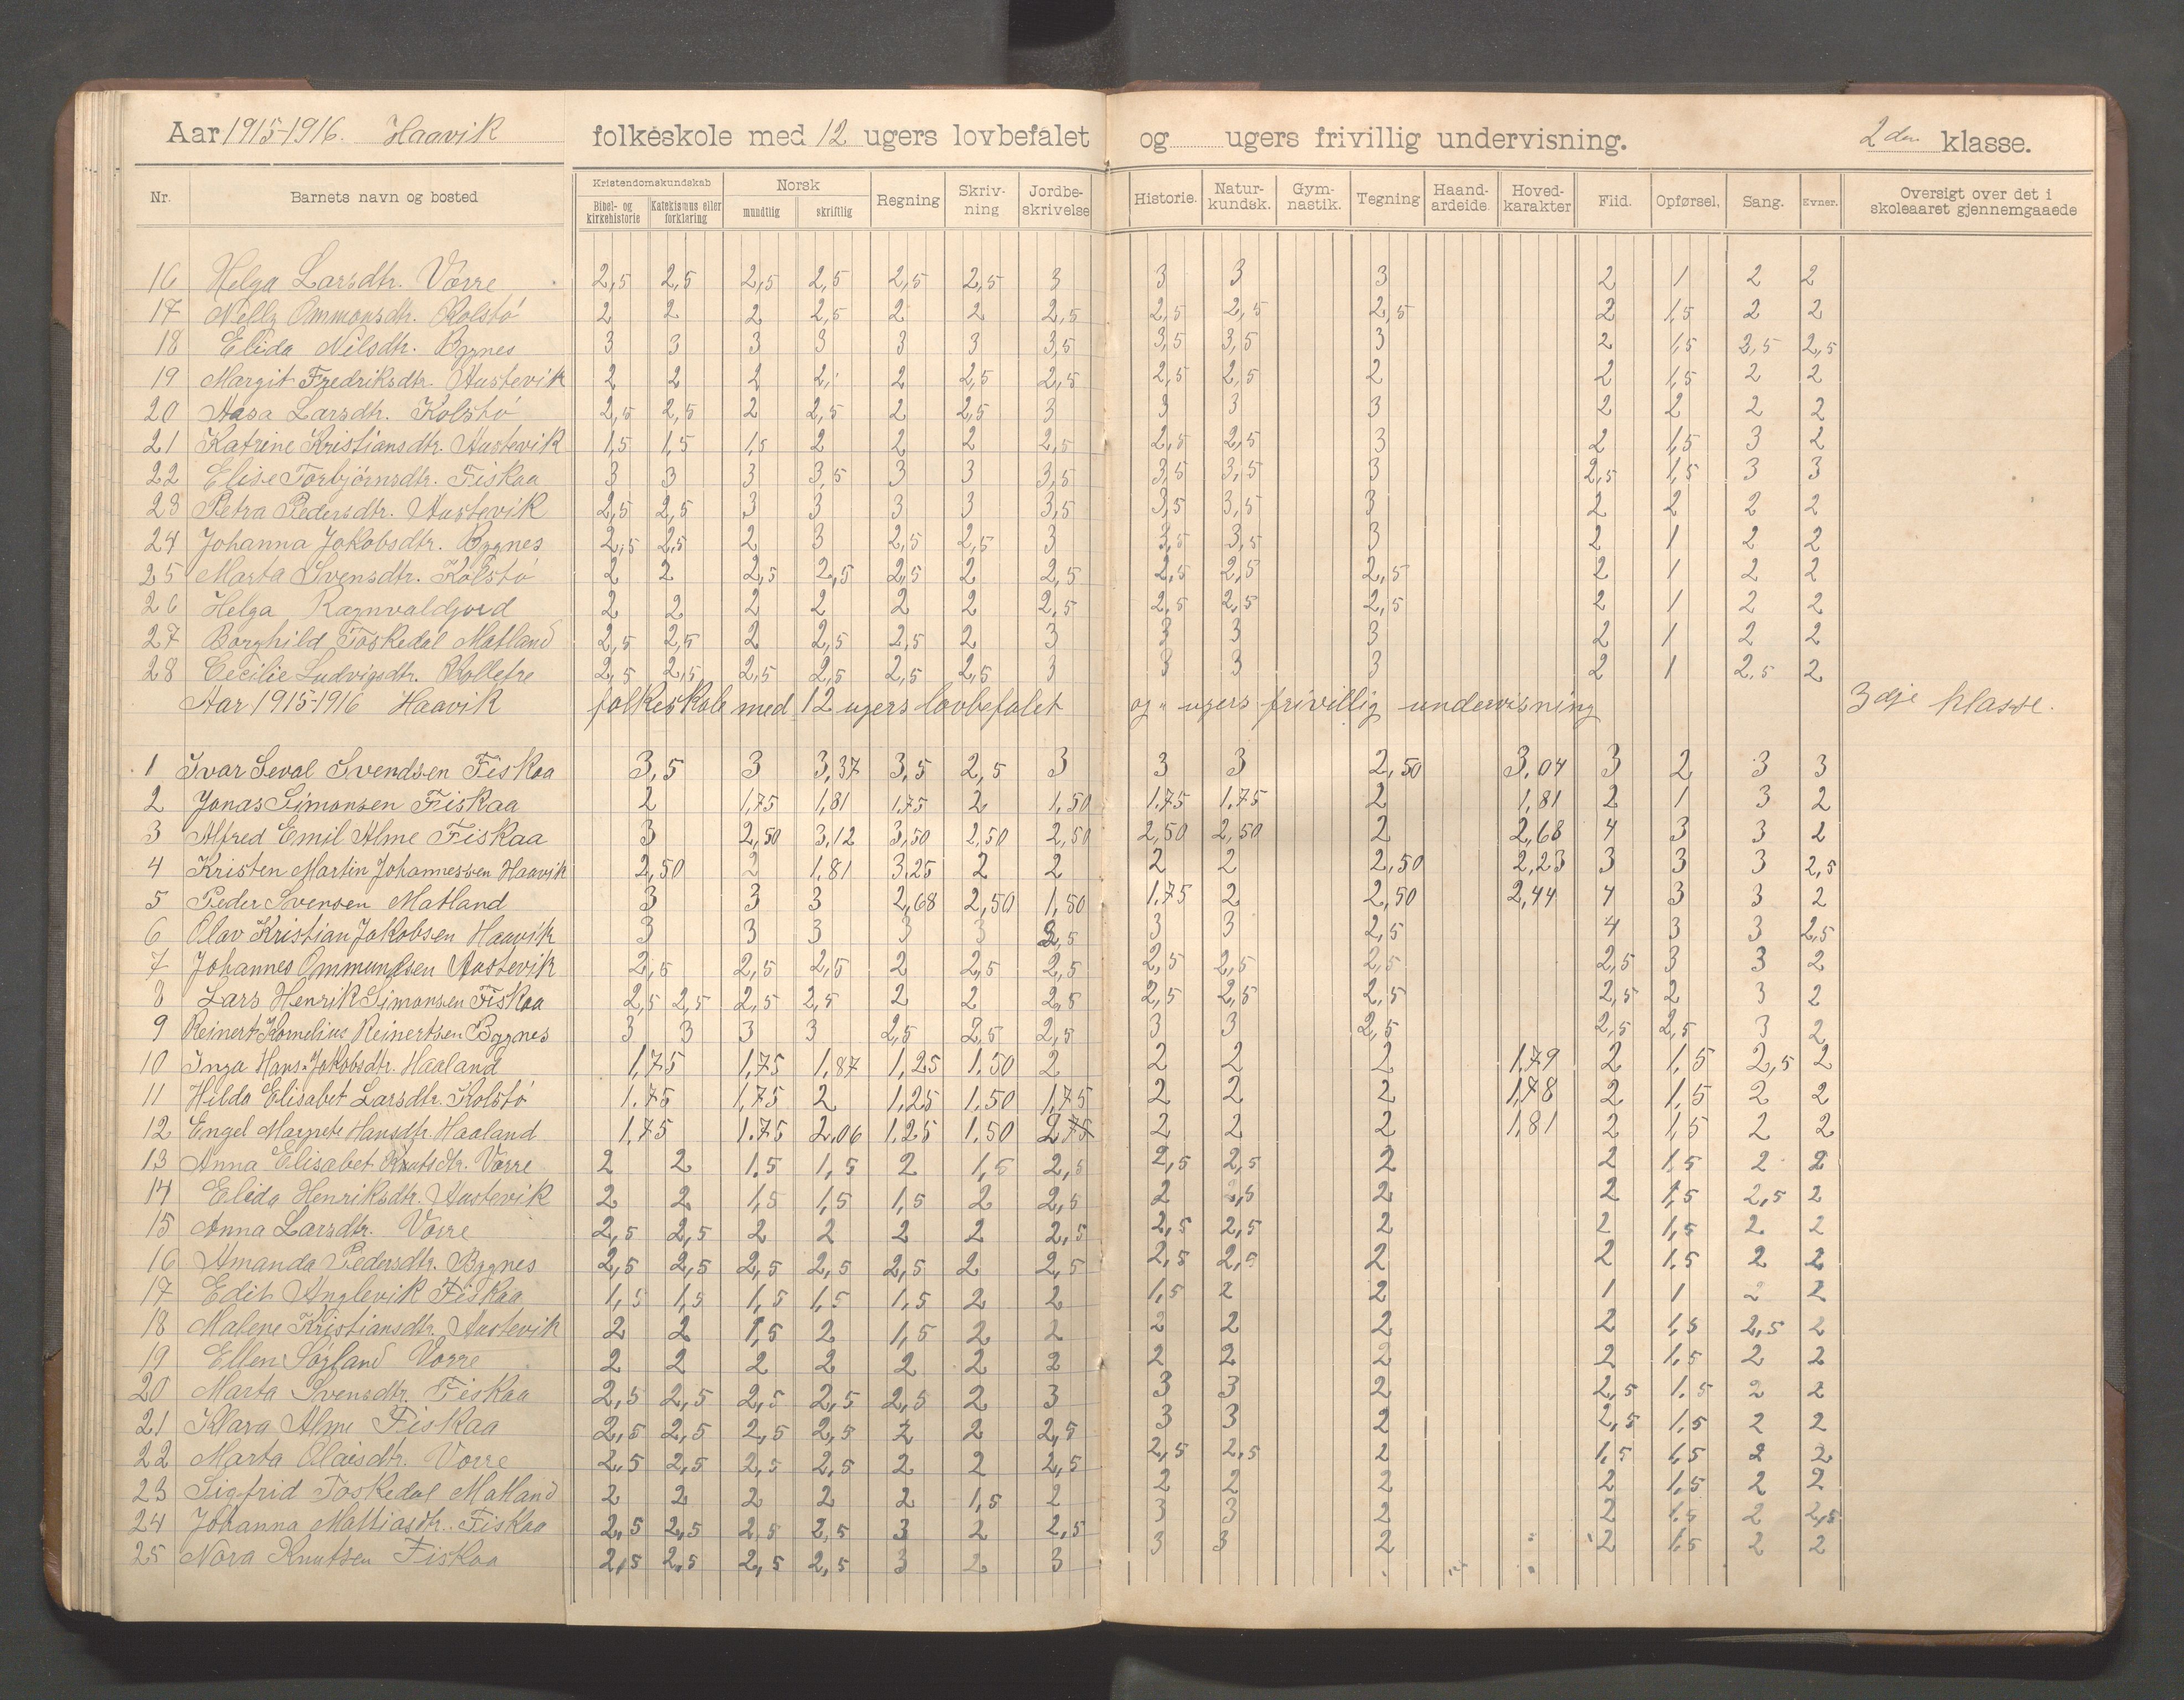 Aar 1915-1916. Haavik folkeskole med 12 ugers lovbefalet og ugers frivillig undervisning. 2den klasse.
Nr. Barnets navn og bosted Kristendomskundskab Bibel- og kirkehistorie Katekismus eller forklaring Norsk mundtlig skriftlig Regning Skriv-ning Jordbe-skrivelse Historie. Natur-kundsk. Gym-nastik. Tegning Haand-arbeide. Hoved-karakter Flid. Opførsel, Sang. Evner. Oversigt over det i skoleaaret gjennemgaaede
16 Helga Larsdtr. Vorre 2,5 2,5 2,5 2,5 2,5 2,5 3 3 3 3 2 1 2 2
17 Nelly Ommonsdtr. Kolstö 2 2 2 2,5 2 2 2,5 2,5 2,5 2,5 2 1,5 2 2
18 Elida Nilsdtr. Bygnes 3 3 3 3 3 3 3,5 3,5 3,5 3 2 1,5 2,5 2,5
19 Margit Fredriksdtr. Austevik 2 2 2 2, 2 2,5 2,5 2,5 2,5 2 2 1,5 2 2
20 Aasa Larsdtr. Kolstö 2,5 2,5 2 2,5 2 2,5 3 3 3 3 2 2 2 2
21 Katrine Kristiansdtr. Austevik 1,5 1,5 1,5 2 2 2 2,5 2,5 2,5 3 2 1,5 3 2
22 Elise Torbjörnsdtr. Fiskaa 3 3 3 3,5 3 3 3,5 3,5 3,5 3 2,5 1,5 3 3
23 Petra Pedersdtr. Austevik 2,5 2,5 3 3 3 3 3,5 3,5 3,5 3 2 2 2 2
24 Johanna Jakobsdtr. Bygnes 2,5 2,5 2 3 2,5 2,5 3 3,5 3,5 3 2 1 2 2
25 Marta Svensdtr. Kolstö 2 2 2,5 2,5 2,5 2 2,5 2,5 2,5 2,5 2 1 2 2
26 Helga Ragnvaldjord 2 2 2 2 2 2 2,5 2,5 2,5 2,5 2 1 2 2
27 Borghild Toskedal Matland 2,5 2,5 2 2,5 2,5 2 3 3 3 3 2 1 2 2
28 Cecilie Ludvigsdtr. Kolletre 2,5 2,5 2,5 2,5 2,5 2,5 3 3 3 3 2 1 2,5 2
Aar 1915-1916 Haavik folkeskole med 12 ugers lovbefalet og " ugers frivillig undervisning 3dje klasse.
1 Ivar Seval Svendsen Fiskaa 3,5 3 3,37 3,5 2,5 3 3 3 2,50 3,04 3 2 3 3
2 Jonas Simonsen Fiskaa 2 1,75 1,81 1,75 2 1,50 1,75 1,75 2 1,81 2 1 3 2
3 Alfred Emil Alme Fiskaa 3 2,50 3,12 3,50 2,50 2,50 2,50 2,50 2 2,68 4 3 3 2
4 Kristen Martin Johannessen Haavik 2,50 2 1,81 3,25 2 2 2 2 2,50 2,23 3 3 3 2,5
5 Peder Svensen Matland 3 3 3 2,68 2,50 1,50 1,75 2 2,50 2,44 4 3 3 2
6 Olav Kristian Jakobsen Haavik 3 3 3 3 3 2,5 3 3 2,5 4 3 3 2,5
7 Johannes Ommundsen Austevik 2,5 2,5 2,5 2 2,5 2,5 2,5 2,5 2,5 2,5 3 3 2
8 Lars Henrik Simonsen Fiskaa 2,5 2,5 2,5 2,5 2 2 2,5 2,5 2,5 2,5 2,5 2 3 2
9 Reinert Kornelius Reinertsen Bygnes 3 3 3 3 2,5 2,5 2,5 3 3 2,5 2,5 2,5 3 2
10 Inga Hans-Jakobsdtr. Haaland 1,75 1,75 1,87 1,25 1,50 2 2 2 2 1,79 2 1,5 2,5 2
11 Hilda Elisabet Larsdtr. Kolstö 1,75 1,75 2 1,25 1,50 1,75 2 2 2 1,78 2 1,5 2 2
12 Engel Margrete Hansdtr. Haaland 1,75 1,75 2,06 1,25 1,50 2 2 2 2 1,81 2 1,5 2 2
13 Anna Elisabet Knutsdtr. Vorre 2 2 1,5 1,5 2 1,5 2,5 2,5 2,5 2 2 1,5 2 2
14 Elida Henriksdtr. Austevik 2 2 1,5 1,5 1,5 2 2,5 2 2,5 2 2 1,5 2,5 2
15 Anna Larsdtr. Vorre 2,5 2,5 2 2 2 2 2,5 2,5 2,5 2 2 1,5 2 2
16 Amanda Pedersdtr. Bygnes 2,5 2,5 2,5 2,5 2,5 2 2,5 2,5 2,5 2 2 1,5 2 2
17 Edit Anglevik Fiskaa 1,5 1,5 1,5 1,5 1,5 2 2 1,5 2 2 1 1 2 2
18 Malene Kristiansdtr. Austevik 2 2 1,5 2 1,5 2 2 2 2 2 2 1,5 2,5 2
19 Ellen Sögland Vorre 2 2 2 2 2 2 2 2 2 2 2 1,5 2 2
20 Marta Svensdtr. Fiskaa 2,5 2,5 2,5 2,5 2,5 2 3 3 3 2 2,5 1,5 2 2
21 Klara Alme Fiskaa 2,5 2,5 2,5 2,5 2 2 2,5 3 3 2 2,5 1,5 2 2
22 Marta Olaisdtr. Vorre 2,5 2,5 2,5 2,5 2 2 2,5 2,5 2,5 2 1,5 1,5 2 2
23 Sigfrid Toskedal Matland 2 2 2 2 2 1,5 2 2 2 2 2 1,5 2 2
24 Johanna Mattiasdtr. Fiskaa 2,5 2,5 2,5 2,5 3 2 2,5 3 3 2 2 1,5 2 2,5
25 Nora Knutsen Fiskaa 2,5 2,5 2,5 2,5 3 2 3 3 3 2 2 1,5 2 2